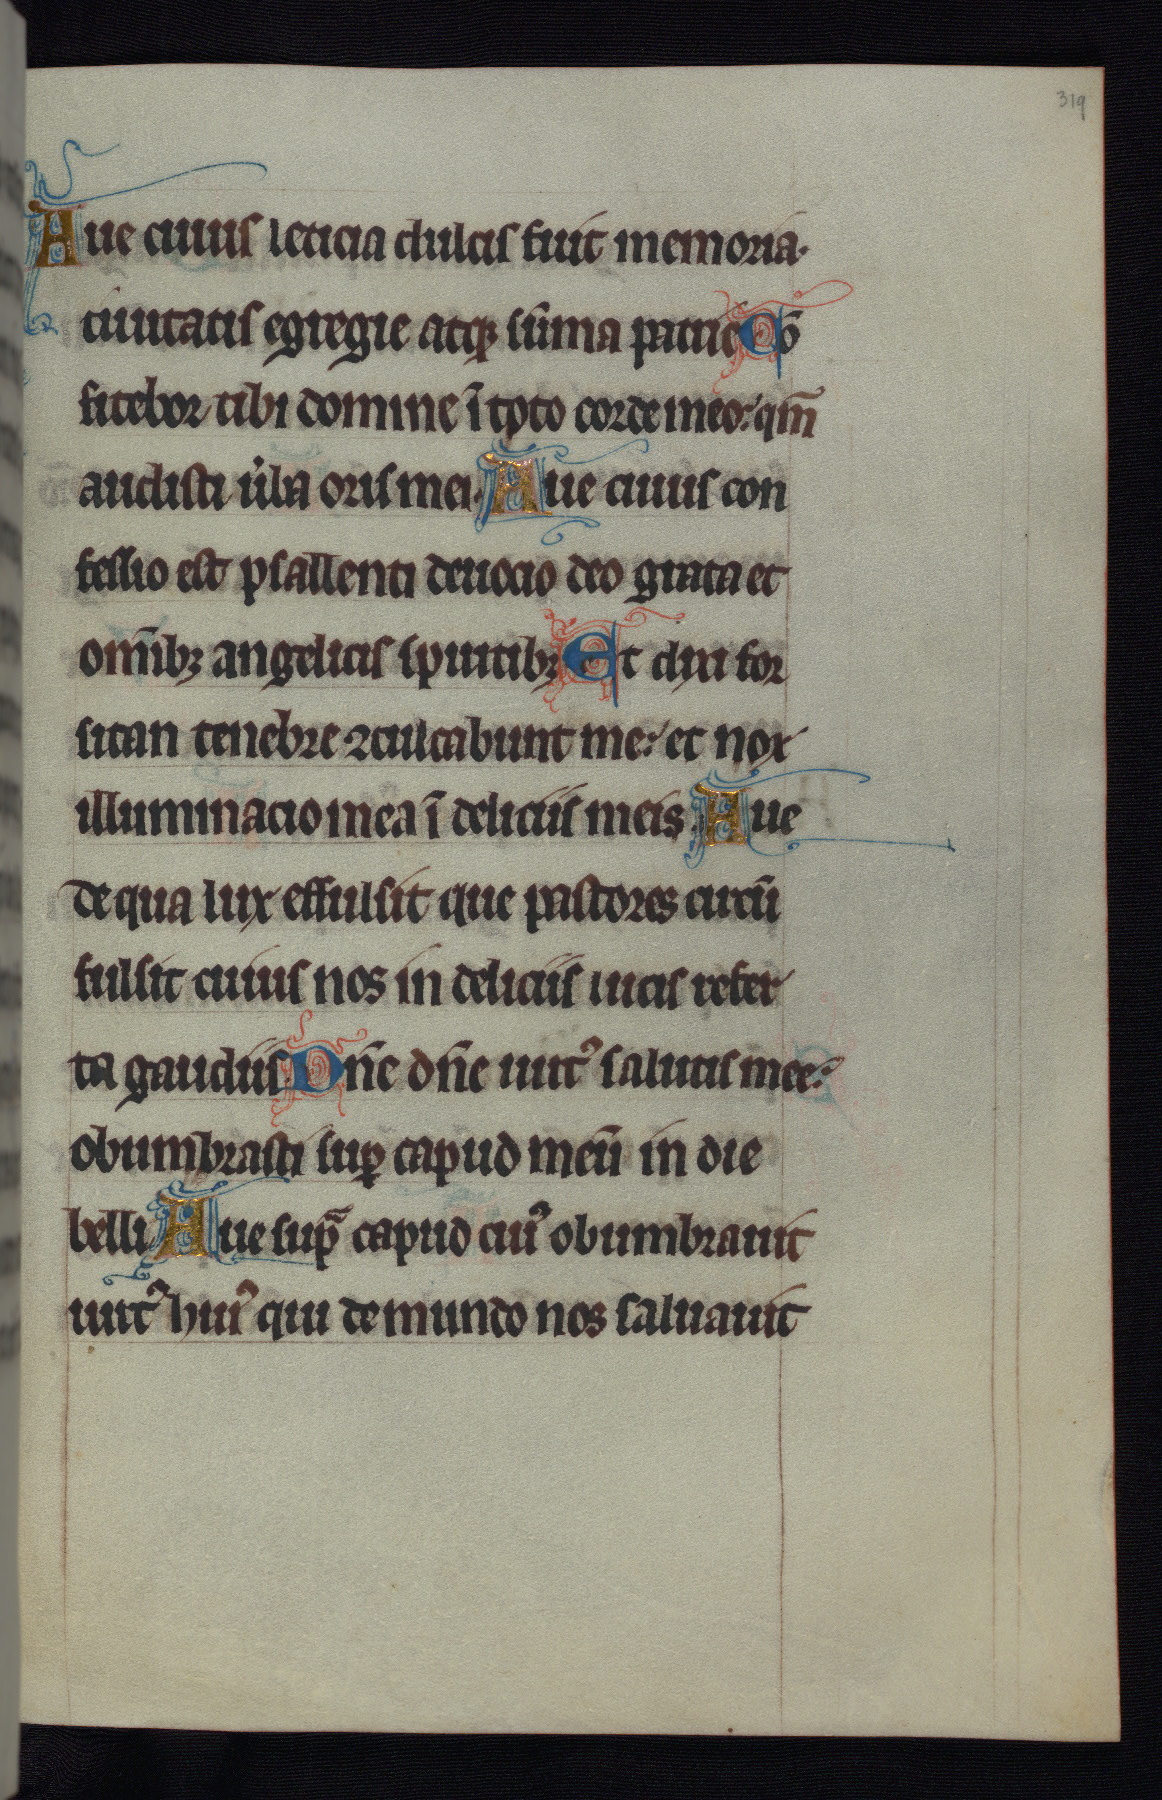 319
Aue cuius leticia dulcis fuit memoria·
ciuitatis egregie atqꝫ sūma patrie Cō
fitebor tibi domine ī toto corde meo: qm̄
audisti u̓ba oris mei. Aue cuius con
fessio est psallenti deuocio deo grata et
om̄ibꝫ angelicis spiritibꝫ Et dixi for
sitan tenebre ꝯculcabunt me: et nox
illuminacio mea ī deliciis meis. Aue
de qua lux effulsit que pastores circū
fulsit cuius nos in deliciis lucis refer
ta gaudiis. Dn̄e dn̄e uirtꝰ salutis mee:
obumbrasti suꝑ capud meū in die
belli Aue sup̄ capud cuiꝰ obumbrauit
uirtꝰ huiꝰ qui de mundo nos saluauit